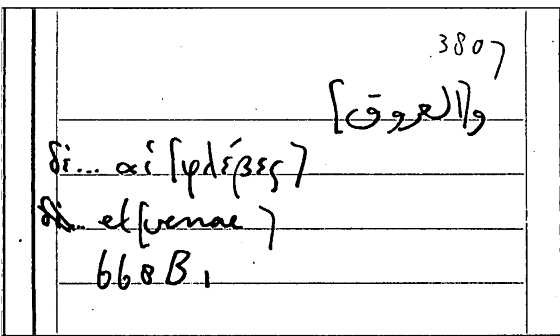 3807
و[العروق]
δὲ... αἱ [φλέβες]
et [venae]
668B1